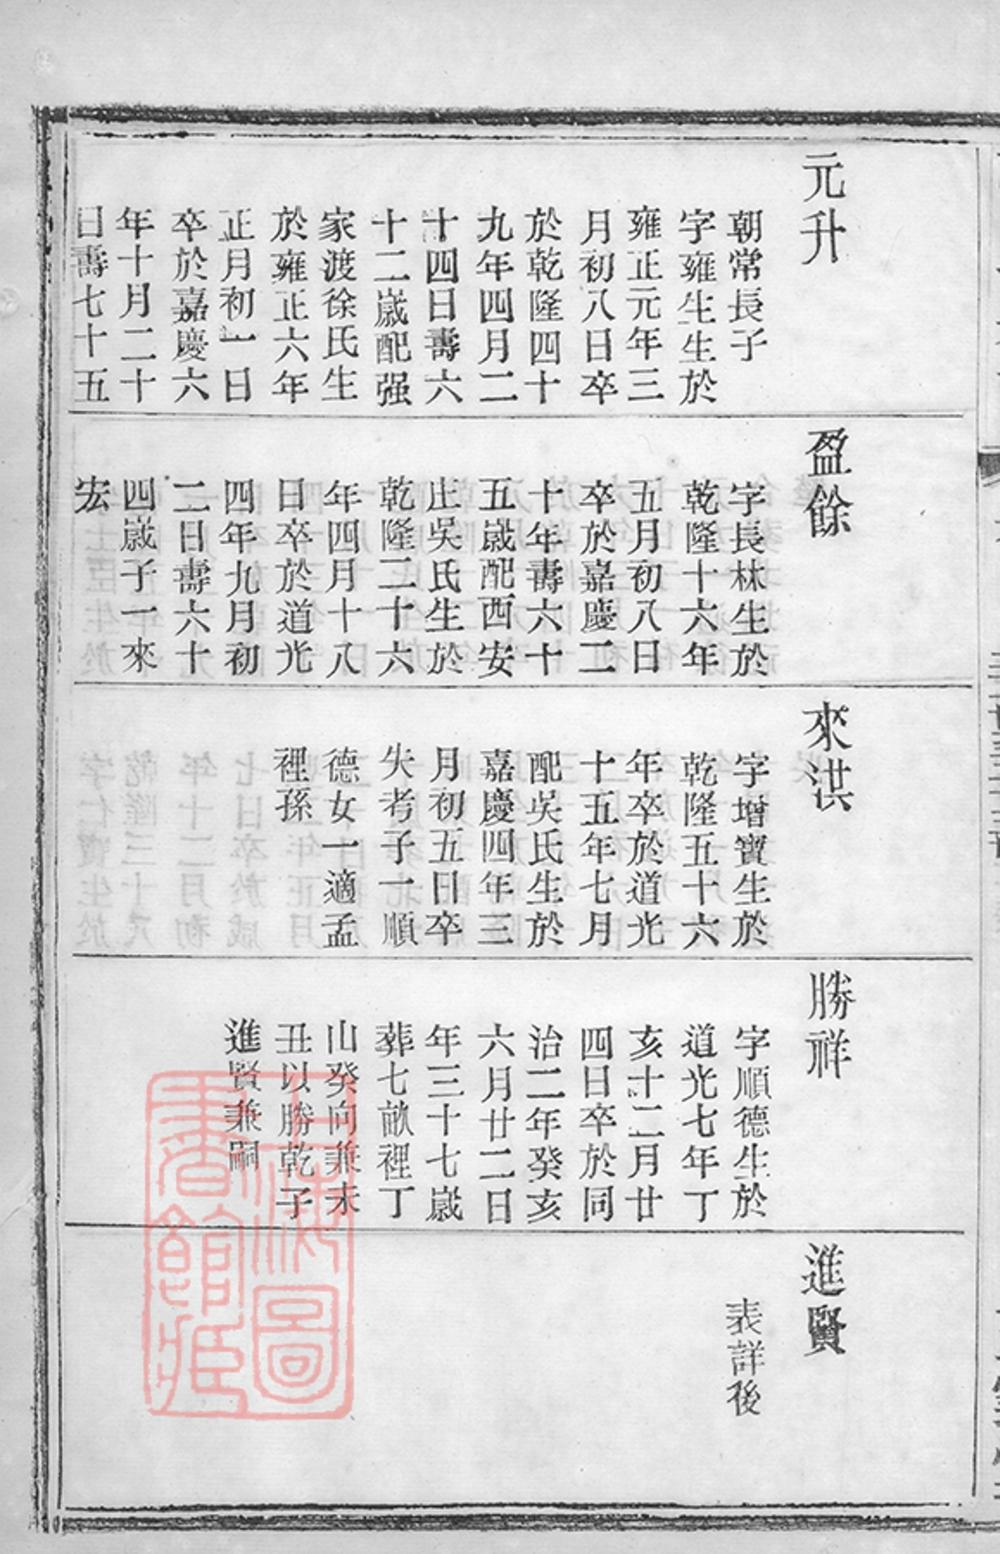 元升
朝常長子
字雍生生於
雍正元年三
月初八日卒
於乾隆四十
九年四月二
十四日壽六
十二歲配强
家渡徐氏生
於雍正六年
正月初一日
卒於嘉慶六
年十月二十
日壽七十五
盈餘
字長林生於
乾隆十六年
五月初八日
卒於嘉慶二
十年壽六十
五歲配西安
庄吳氏生於
乾隆二十六
年四月十八
日卒於道光
四年九月初
二日壽六十
四歲子一來
宏
來洪
字增寶生於
乾隆五十六
年卒於道光
十五年七月
配吳氏生於
嘉慶四年三
月初五日卒
失考子一順
德女一適孟
裡孫
勝祥
字順德生於
道光七年丁
亥十二月廿
四日卒於同
治二年癸亥
六月廿二日
年三十七歲
葬七畝裡丁
山癸向兼未
丑以勝乾子
進賢兼嗣
進賢
表詳後
上海圖
書館藏